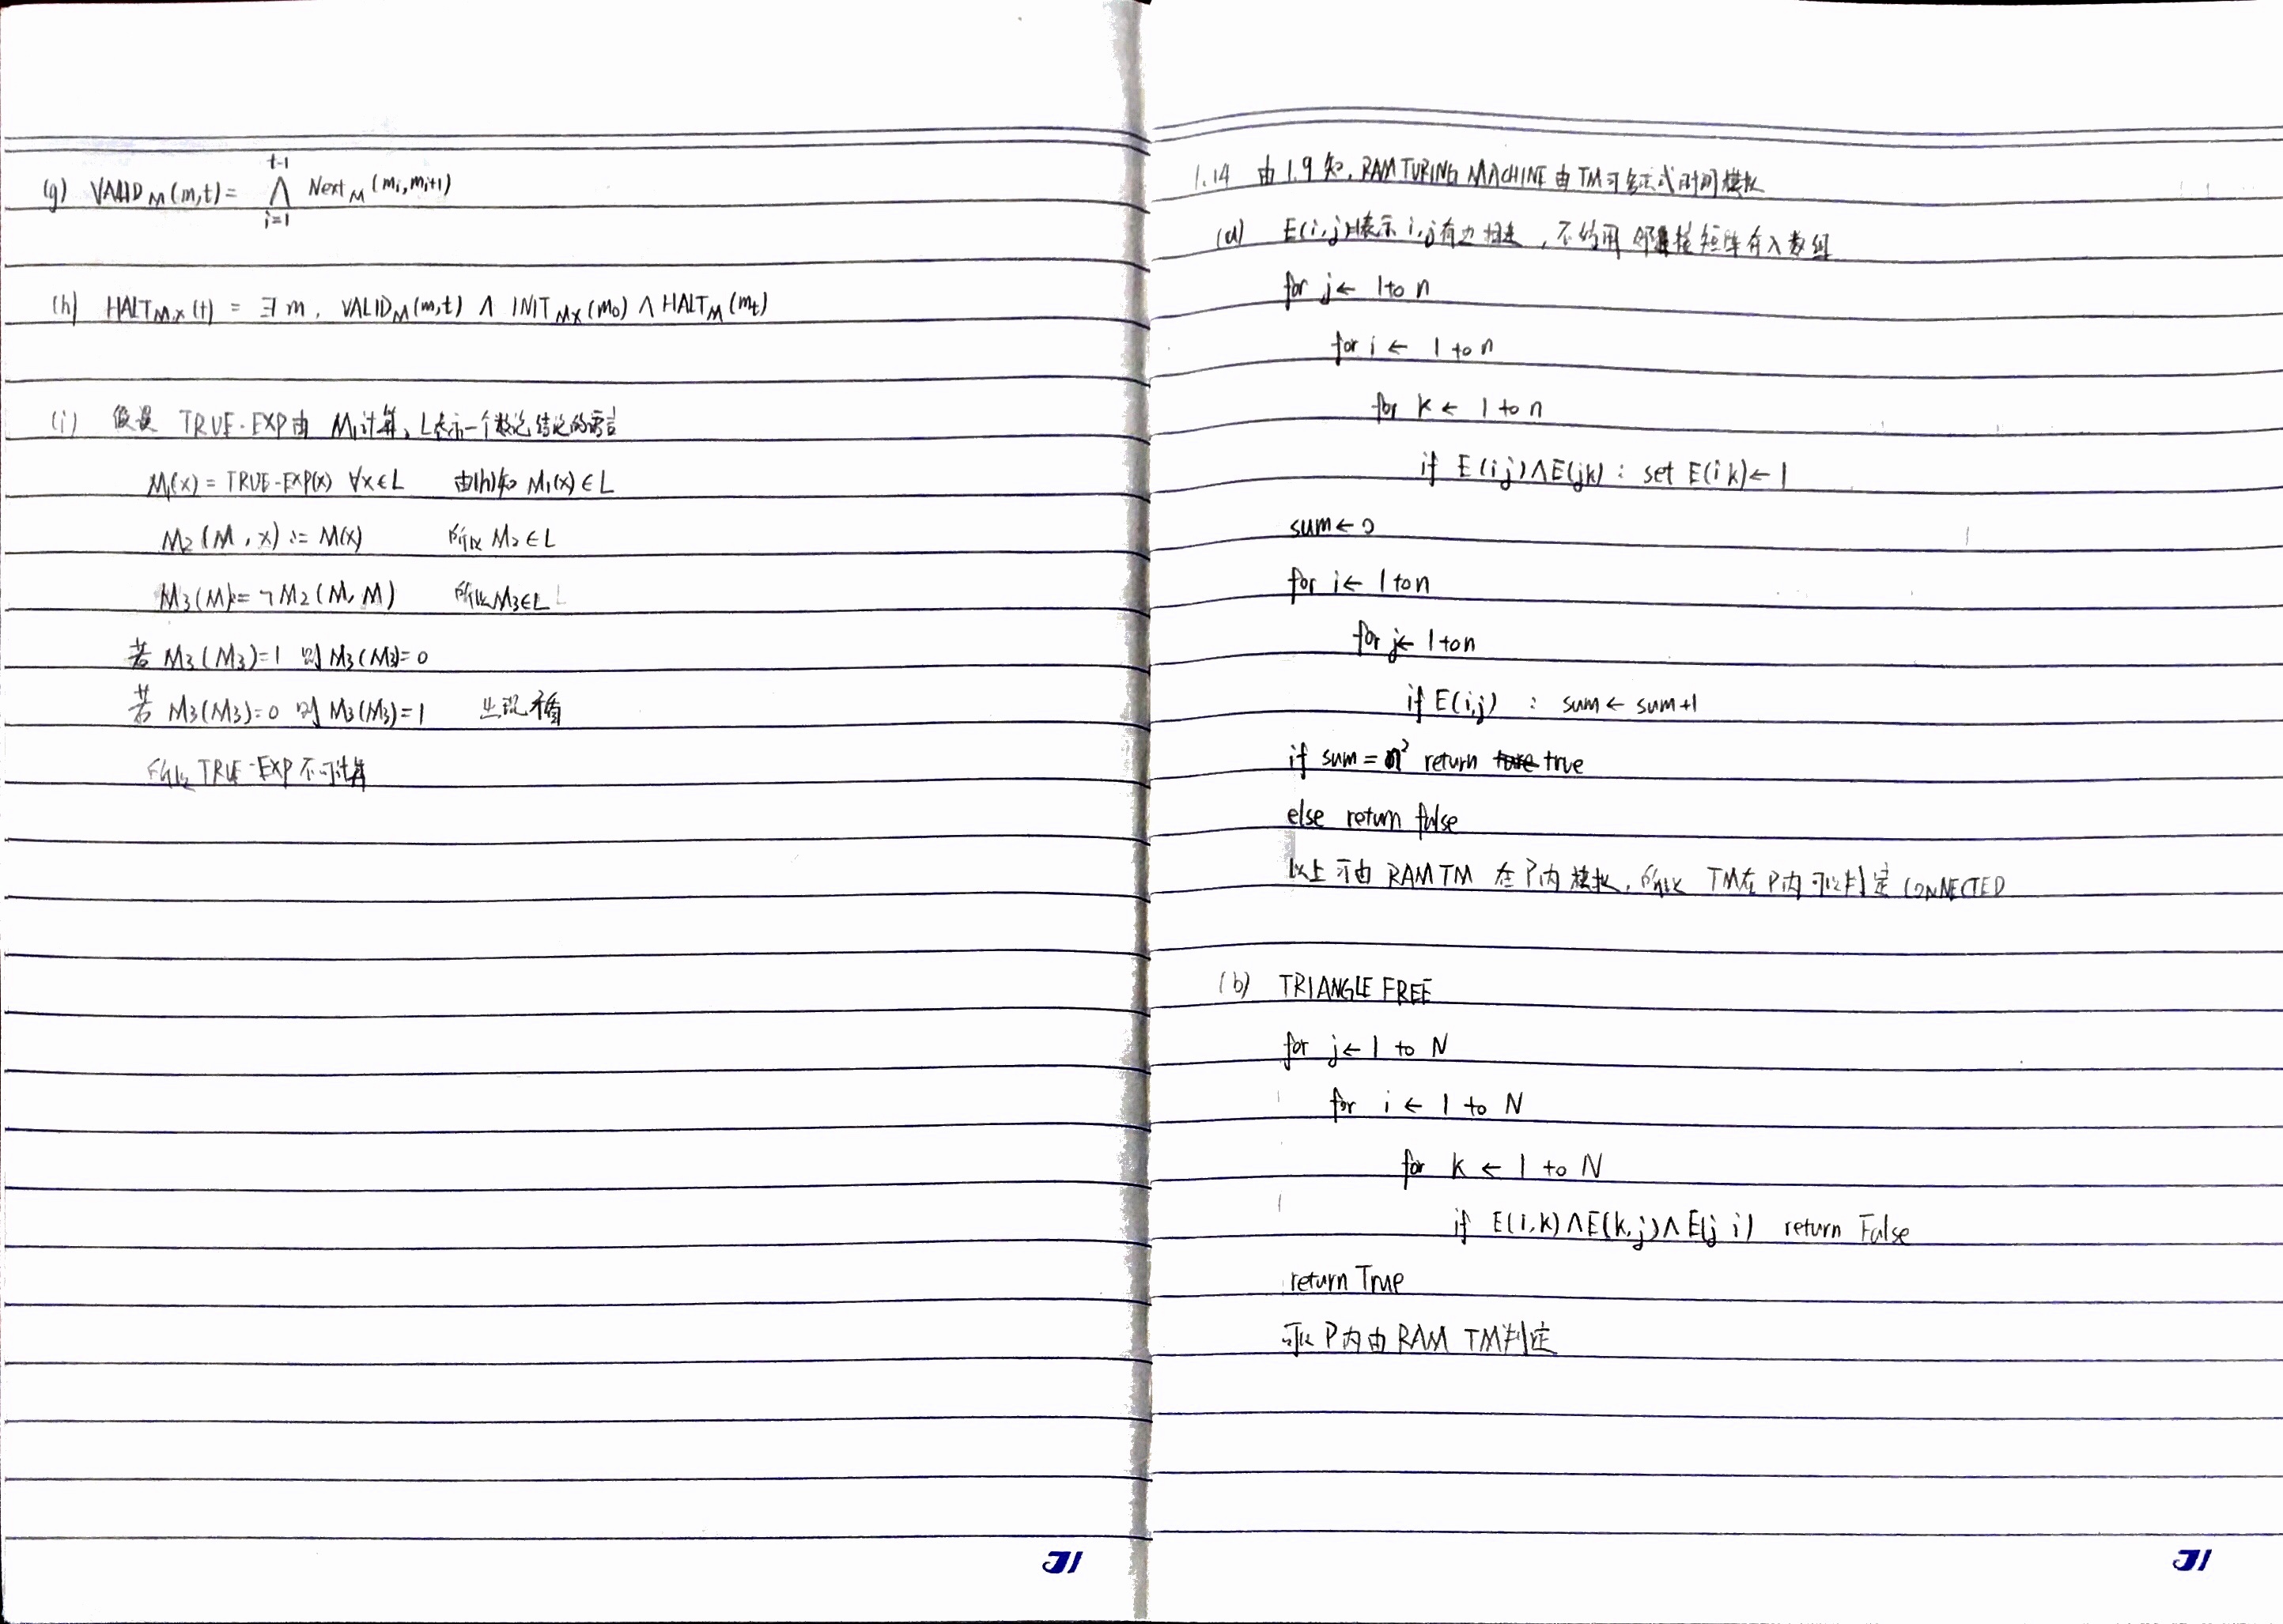 (g) VALID_M(m,t) = ⋀_{i=1}^{t-1} Next_M(m_i, m_{i+1})
(h) HALT_{M,x}(t) = ∃m. VALID_M(m,t) ∧ INIT_{MX}(m_0) ∧ HALT_M(m_t)
(i) 假设 TRUE-EXP由 M_1计算, L表示一个数论结论的语言
M_1(x) = TRUE-EXP(x) ∀x∈L 由(h)知 M_1(x)∈L
M_2(M, x) := M(x) 所以 M_2∈L
M_3(M) = ¬M_2(M, M) 所以M_3∈L
若 M_3(M_3)=1 则 M_3(M_3)=0
若 M_3(M_3)=0 则 M_3(M_3)=1 出现矛盾
所以 TRUE-EXP 不可计算
1.14 由 1.9 知, RAM TURING MACHINE 由 TM可多项式时间模拟
(a) E(i,j)表示 i,j有边相连, 不妨用邻接矩阵存入数组
for j← 1 to n
for i ← 1 to n
for k ← 1 to n
if E(ij)∧E(jk) : set E(ik)← 1
sum← 0
for i← 1 to n
for j← 1 to n
if E(i,j) : sum ← sum+1
if sum = n² return true
else return false
以上可由 RAM TM 在 P内 模拟, 所以 TM在 P内 可以判定 CONNECTED
(b) TRIANGLE FREE
for j← 1 to N
for i ← 1 to N
for k ← 1 to N
if E(i,k)∧E(k,j)∧E(j i) return False
return True
可以 P内由 RAM TM判定
JI
JI